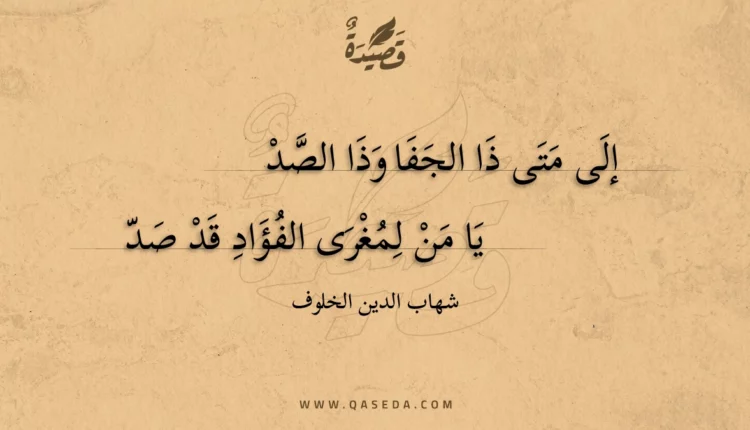 قَصِيدَةٌ
إلَى مَتَى ذَا الجَفَا وَذَا الصَّدْ
يَا مَنْ لِمُغْرَى الفُؤَادِ قَدْ صَدّ
شهاب الدين الخلوف
WWW.QASEDA.COM